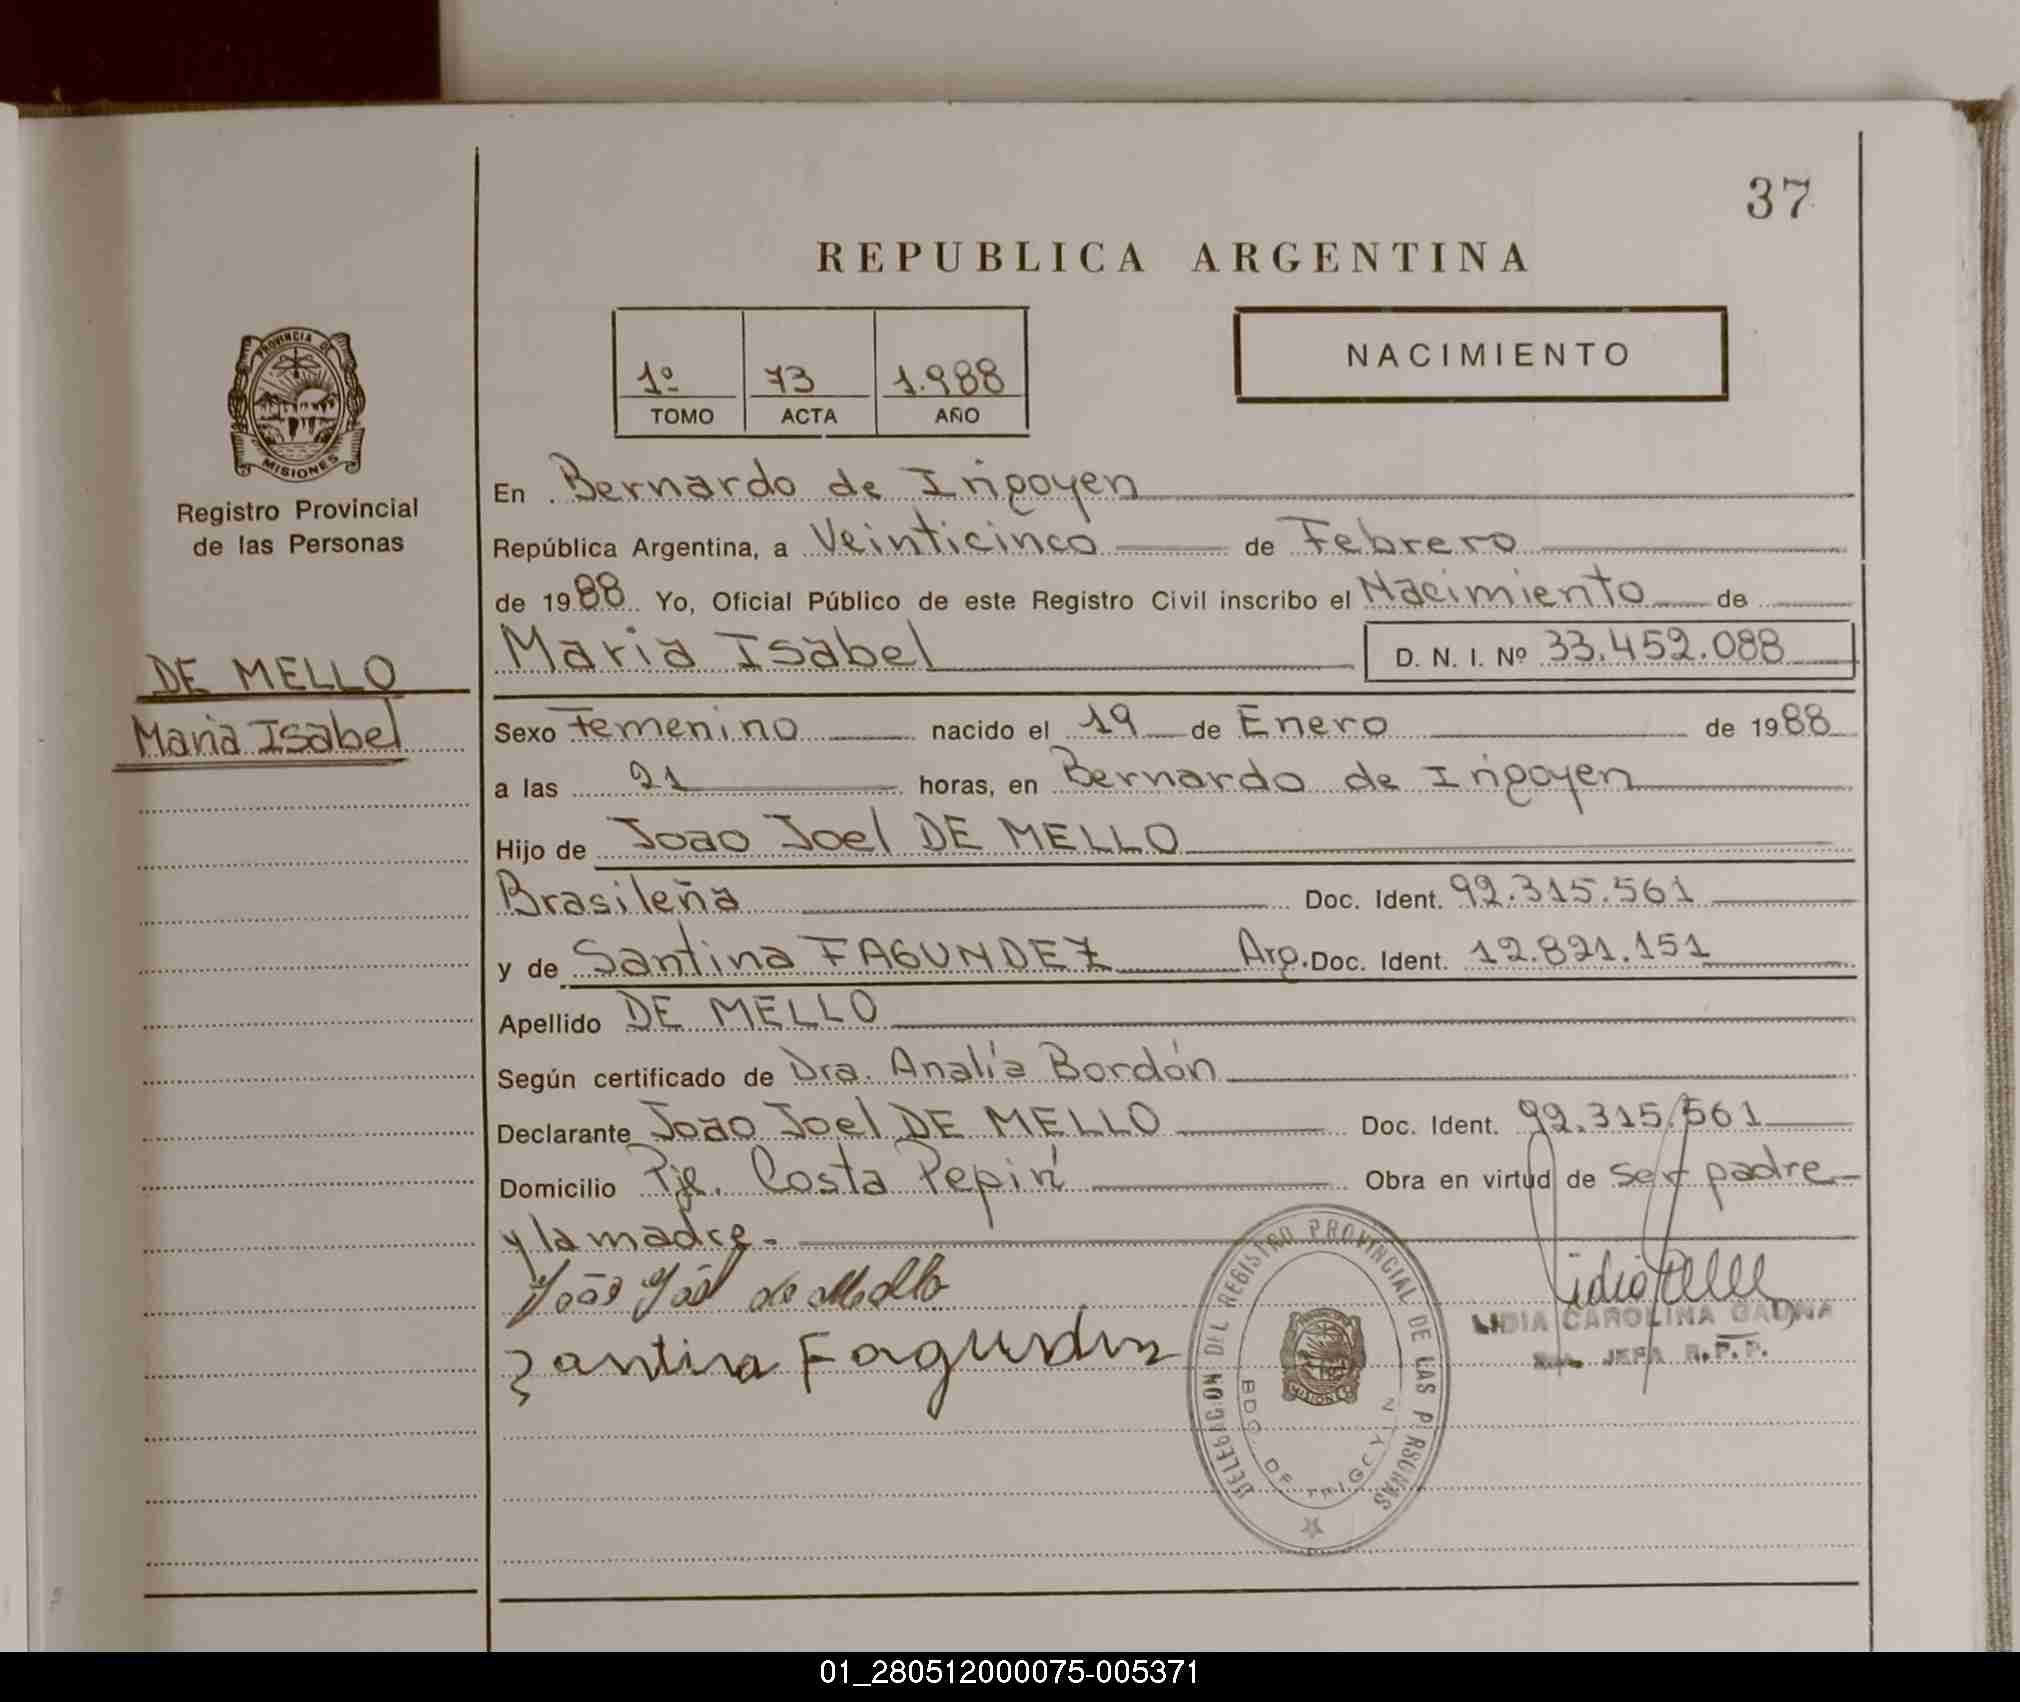 37
REPUBLICA ARGENTINA
1º 73 1.988
TOMO ACTA AÑO
NACIMIENTO
PROVINCIA DE
MISIONES
Registro Provincial
de las Personas
DE MELLO
Maria Isabel
En Bernardo de Irigoyen
República Argentina, a Veinticinco de Febrero
de 1988 Yo, Oficial Público de este Registro Civil inscribo el Nacimiento de
Maria Isabel D. N. I. Nº 33.452.088
Sexo Femenino nacido el 19 de Enero de 1988
a las 21 horas, en Bernardo de Irigoyen
Hijo de Joao Joel DE MELLO
Brasileña Doc. Ident. 92.315.561
y de Santina FAGUNDEZ Arg. Doc. Ident. 12.821.151
Apellido DE MELLO
Según certificado de Dra. Analía Bordón
Declarante Joao Joel DE MELLO Doc. Ident. 92.315.561
Domicilio Pje. Costa Pepiri Obra en virtud de ser padre
y la madre.-
João de Mello
Santina Fagundes
DELEGACION DEL REGISTRO PROVINCIAL DE LAS PERSONAS
BDO. DE IRIGOYEN
MISIONES
LIDIA CAROLINA GAUNA
JEFA R.P.P.
01_280512000075-005371